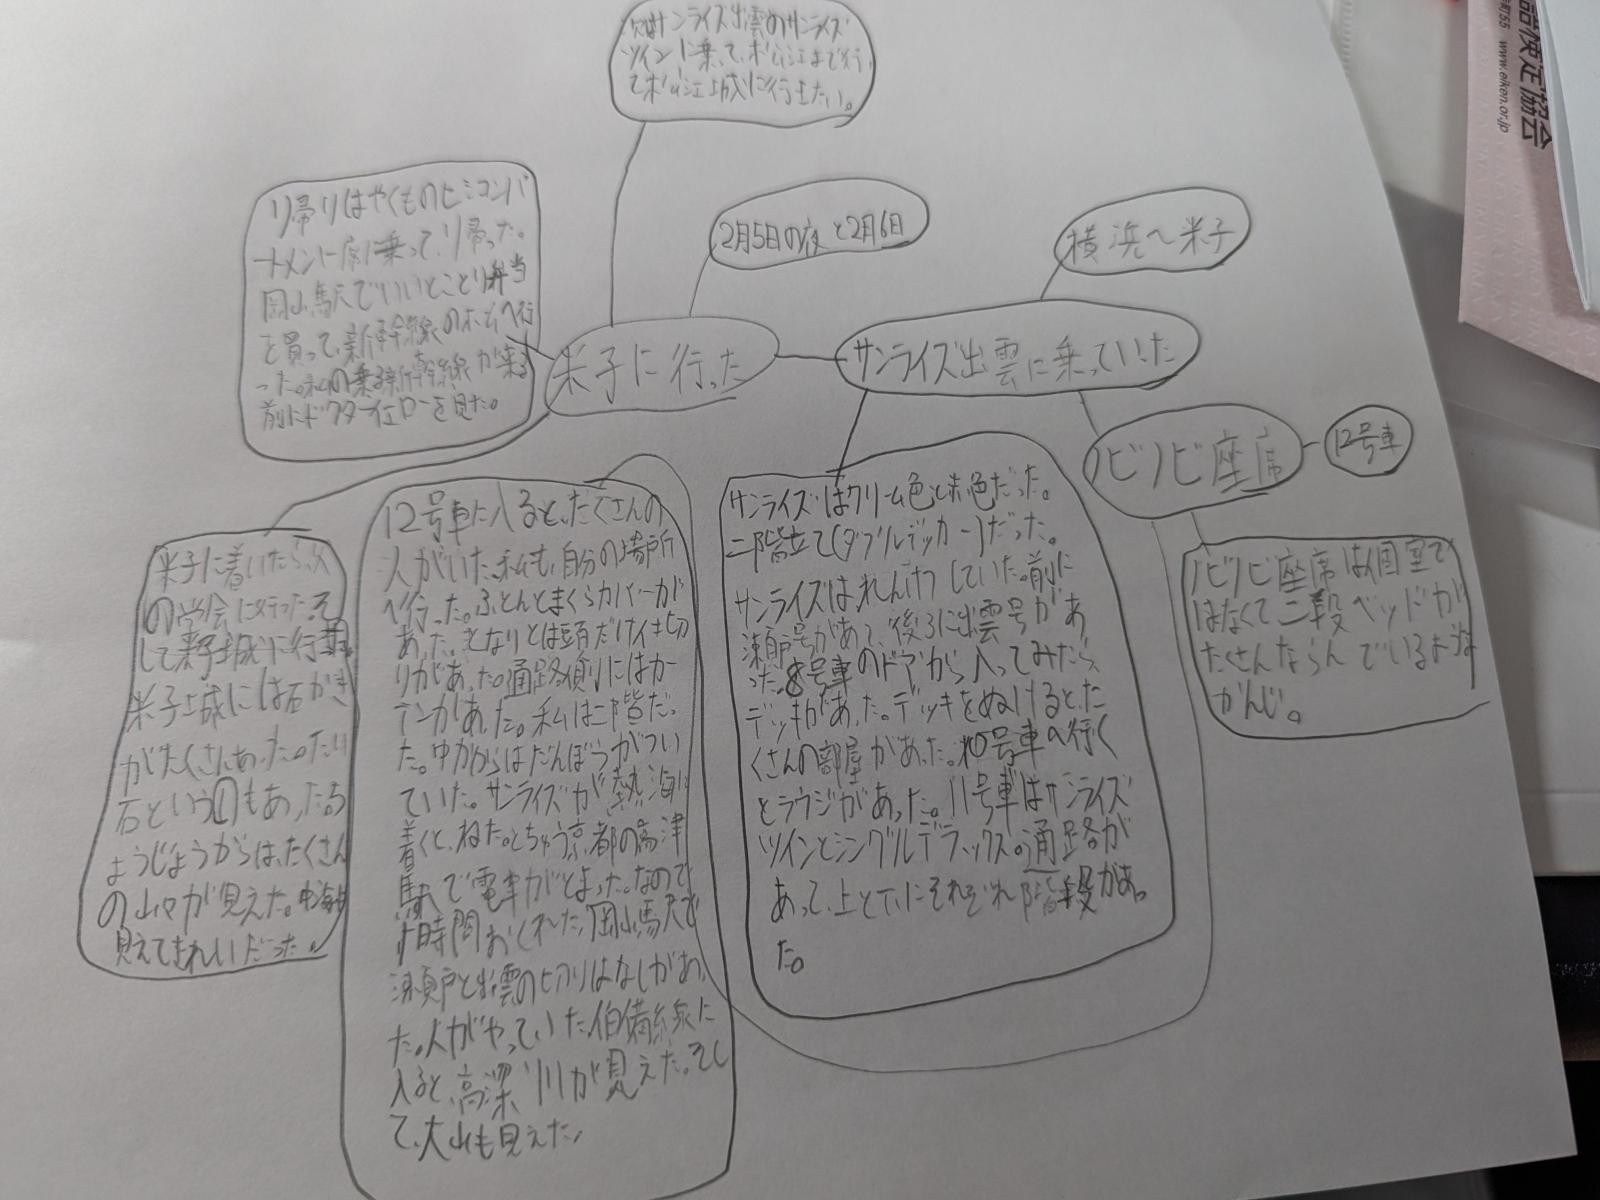 次はサンライズ出雲のサンライズ
ツインに乗って、松江まで行っ
て松江城に行きたい。
2月5日の夜と2月6日
横浜〜米子
帰りはやくものセミコンパ
ートメント席に乗って、帰った。
岡山駅でいいとことり弁当
を買って、新幹線のホームへ行
った。私の乗る新幹線が来る
前にドクターイエローを見た。
米子に行った
サンライズ出雲に乗っていった
ノビノビ座席
12号車
ノビノビ座席は個室で
はなくて二段ベッドが
たくさんならんでいるような
かんじ。
サンライズはクリーム色と赤色だった。
二階立て(ダブルデッカー)だった。
サンライズはれんけつしていた。前に
瀬戸号があって、後ろに出雲号があ
った。8号車のドアから入ってみたら、
デッキがあった。デッキをぬけると、た
くさんの部屋があった。10号車へ行く
とラウジがあった。11号車はサンライズ
ツインとシングルデラックス。通路が
あって、上と下にそれぞれ階段があっ
た。
12号車に入ると、たくさんの
人がいた。私も、自分の場所
へ行った。ふとんとまくらカバーが
あった。となりとは頭だけイキ切
りがあった。通路側にはカー
テンがあった。私は二階だっ
た。ゆかからはだんぼうがつい
ていた。サンライズが熱海に
着くと、ねた。とちゅう京都の高津
駅で電車がとまった。なので
1時間おくれた。岡山駅で
瀬戸と出雲の切りはなしがあっ
た。人がやっていた。伯備線に
入ると、高梁川が見えた。そし
て、大山も見えた。
米子に着いたら、
の学会に行った。そ
して米子城に行った。
米子城には石がき
がたくさんあった。
石というのもあった。ち
ょうじょうからは、たくさん
の山々が見えた。中海も
見えてきれいだった。